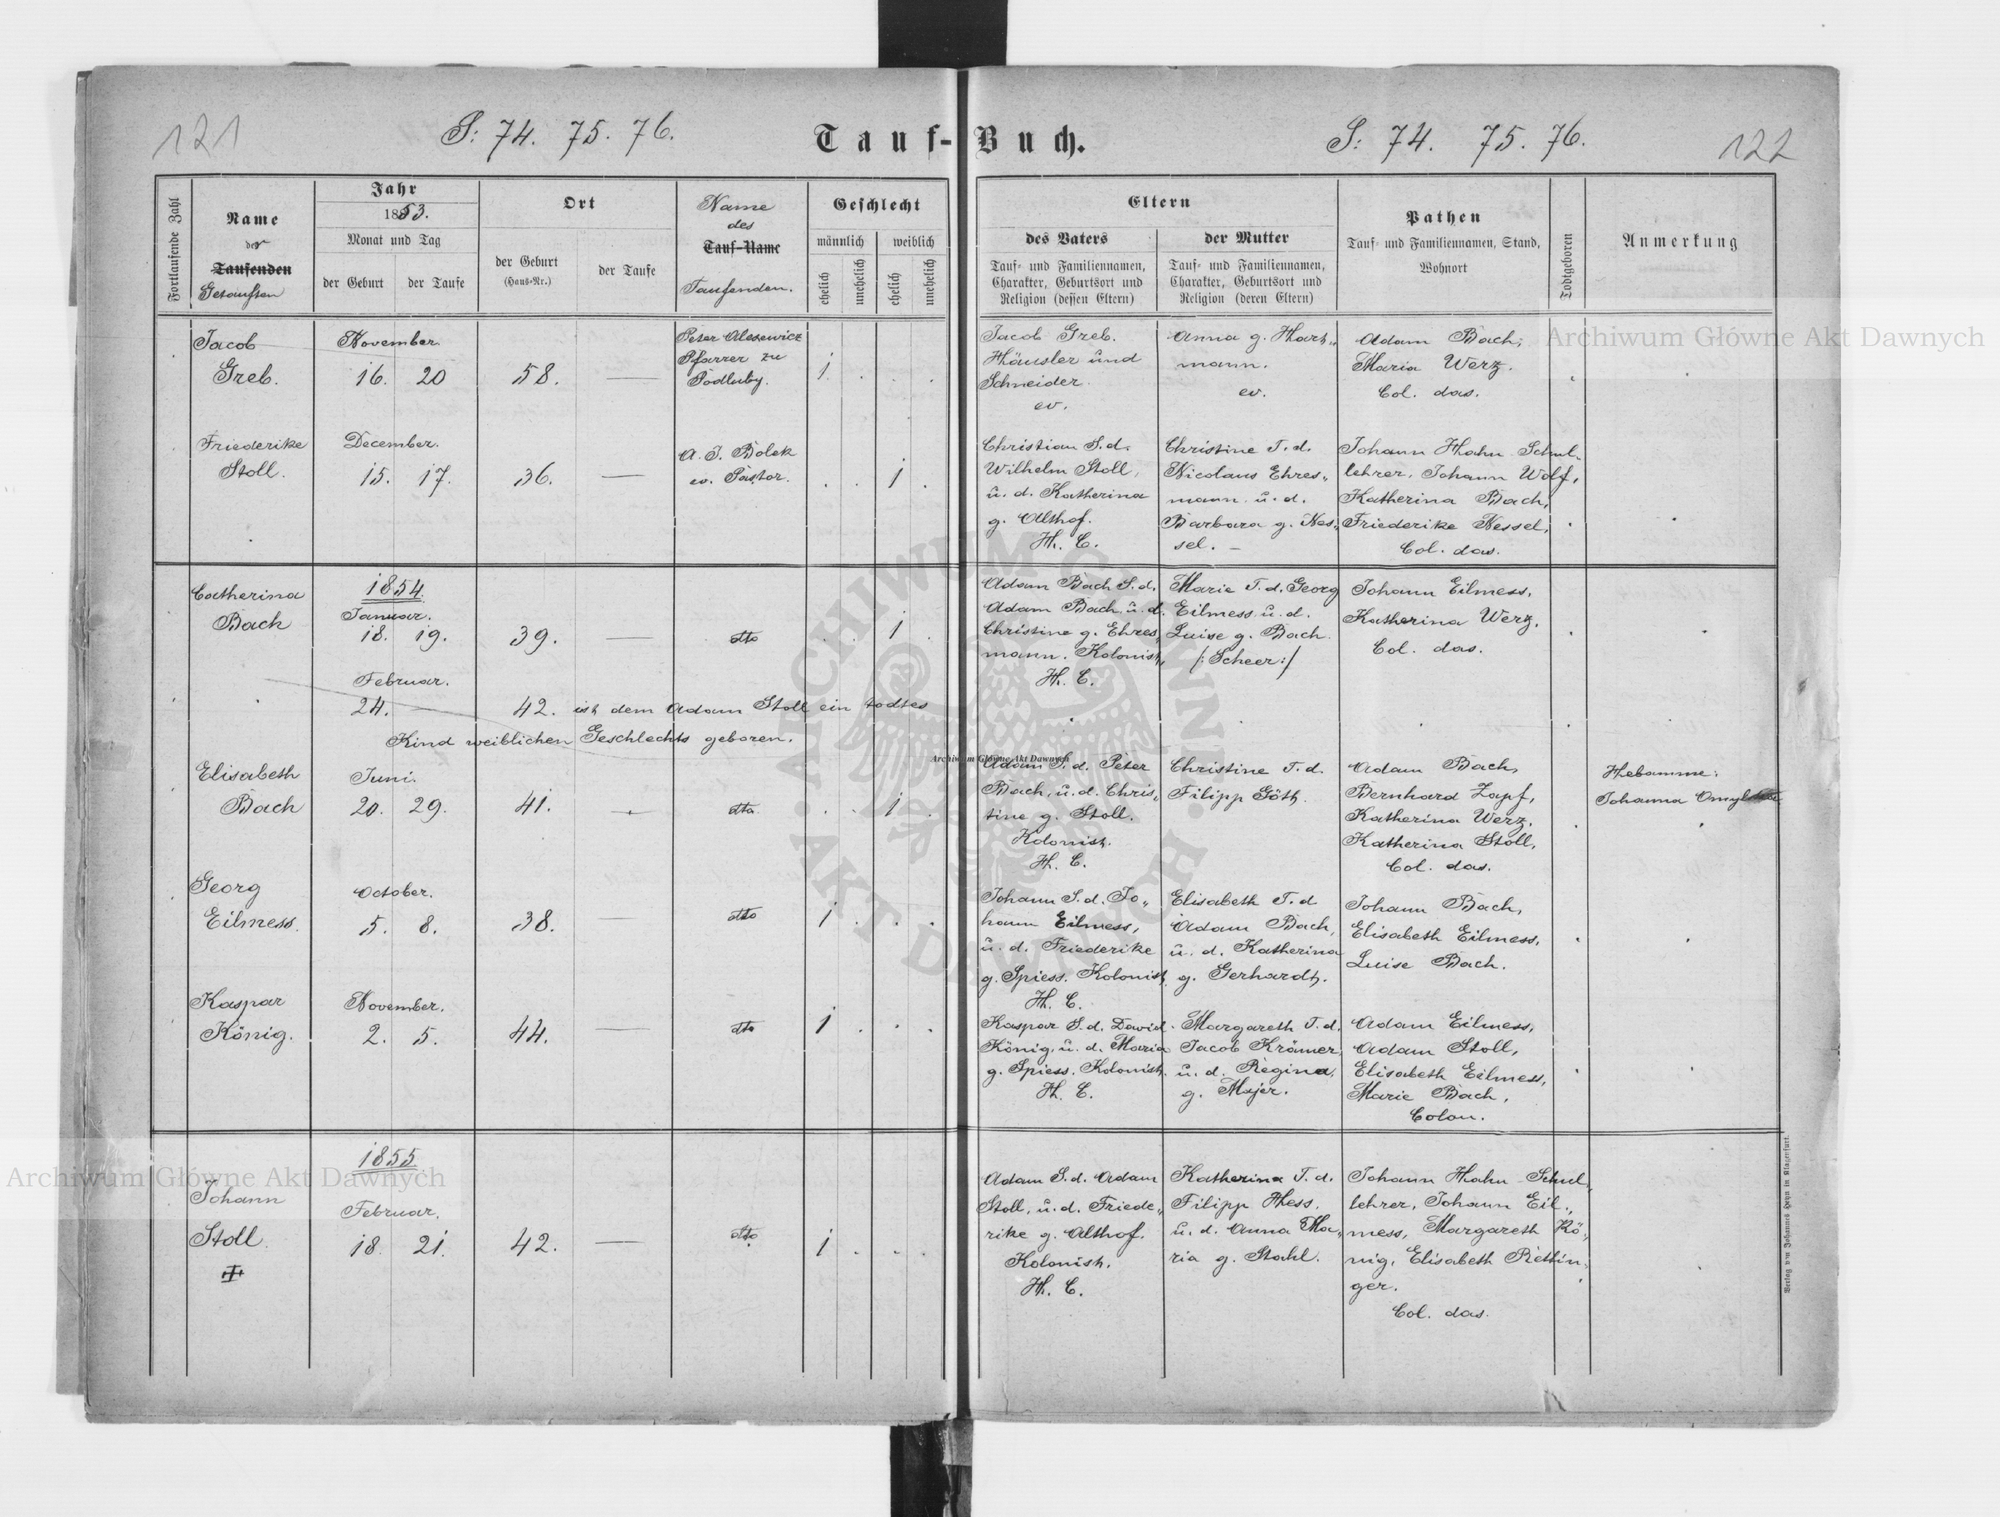 121
S: 74. 75. 76.
Tauf-Buch.
S: 74. 75. 76.
122
Fortlaufende Zahl
Name
der
Taufenden
Getauften
Jahr
1853.
Monat und Tag
der Geburt
der Taufe
Ort
der Geburt
(Haus-Nr.)
der Taufe
Name
des
Tauf-Name
Taufenden.
Geschlecht
männlich
weiblich
ehelich
unehelich
ehelich
unehelich
Eltern
des Vaters
Tauf- und Familiennamen,
Charakter, Geburtsort und
Religion (dessen Eltern)
der Mutter
Tauf- und Familiennamen,
Charakter, Geburtsort und
Religion (deren Eltern)
Pathen
Tauf- und Familiennamen, Stand,
Wohnort
Todtgeboren
Anmerkung
Jacob
Greb.
November
16. 20
58.
Peter Alesewicz
Pfarrer zu
Podluby.
1
Jacob Greb.
Häusler und
Schneider.
ev.
Anna g. Hart„
mann.
ev.
Adam Bach,
Maria Werz.
Col. das.
Friederike
Stoll.
December.
15. 17.
36.
A. J. Bolek
ev. Pastor.
1
Christian S. d.
Wilhelm Stoll,
u. d. Katherina
g. Althof.
H. C.
Christine T. d.
Nicolaus Ehres„
mann u. d.
Barbara g. Nes„
sel. –
Johann Hahn Schul„
lehrer, Johann Wolf,
Katherina Bach,
Friederike Nessel,
Col. das.
Catherina
Bach
1854.
Januar.
18. 19.
39.
dto
1
Adam Bach S. d.
Adam Bach u. d.
Christine g. Ehres„
mann. Kolonist,
H. C.
Marie T. d. Georg
Eilmess u. d.
Luise g. Bach
/: Scheer :/
Johann Eilmess,
Katherina Werz,
Col. das.
Februar.
24.
42. ist dem Adam Stoll ein todtes
Kind weiblichen Geschlechts geboren.
Elisabeth
Bach
Juni.
20. 29.
41.
dto
1
Adam S. d. Peter
Bach, u. d. Chris„
tine g. Stoll.
Kolonist.
H. C.
Christine T. d.
Filipp Göth.
Adam Bach,
Bernhard Zapf,
Katherina Werz,
Katherina Stoll,
Col. das.
Hebamme:
Johanna
Georg
Eilmess.
October.
5. 8.
38.
dto
1
Johann S. d. Jo„
hann Eilmess,
u. d. Friederike
g. Spiess. Kolonist
H. C.
Elisabeth T. d
Adam Bach,
u. d. Katherina
g. Gerhardt.
Johann Bach,
Elisabeth Eilmess,
Luise Bach.
Kaspar
König.
November.
2. 5.
44.
dto
1
Kaspar S. d. David
König, u. d. Maria
g. Spiess. Kolonist.
H. C.
Margareth T. d.
Jacob Krämer
u. d. Regina
g. Majer.
Adam Eilmess,
Adam Stoll,
Elisabeth Eilmess,
Marie Bach,
Colon.
Johann
Stoll.
1855
Februar.
18. 21.
42.
dto
1
Adam S. d. Adam
Stoll, u. d. Friede„
rike g. Althof.
Kolonist.
H. C.
Katherina T. d.
Filipp Hess,
u. d. Anna Ma„
ria g. Stahl.
Johann Hahn Schul„
lehrer, Johann Eil„
mess, Margareth Kö„
nig, Elisabeth Rettin„
ger.
Col. das.
Verlag von Johannes Heyn in Klagenfurt.
Archiwum Główne Akt Dawnych
Archiwum Główne Akt Dawnych
Archiwum Główne Akt Dawnych
ARCHIWUM GŁÓWNE AKT DAWNYCH